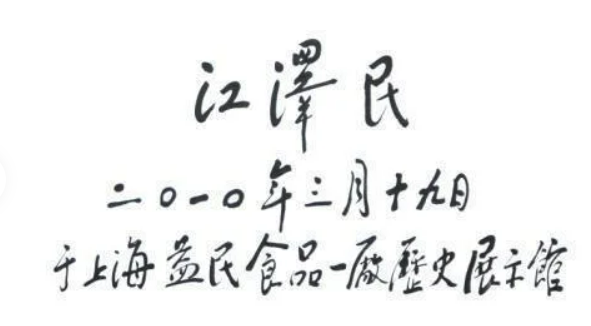 江澤民
二〇一〇年三月十九日
于上海益民食品一廠歷史展示館